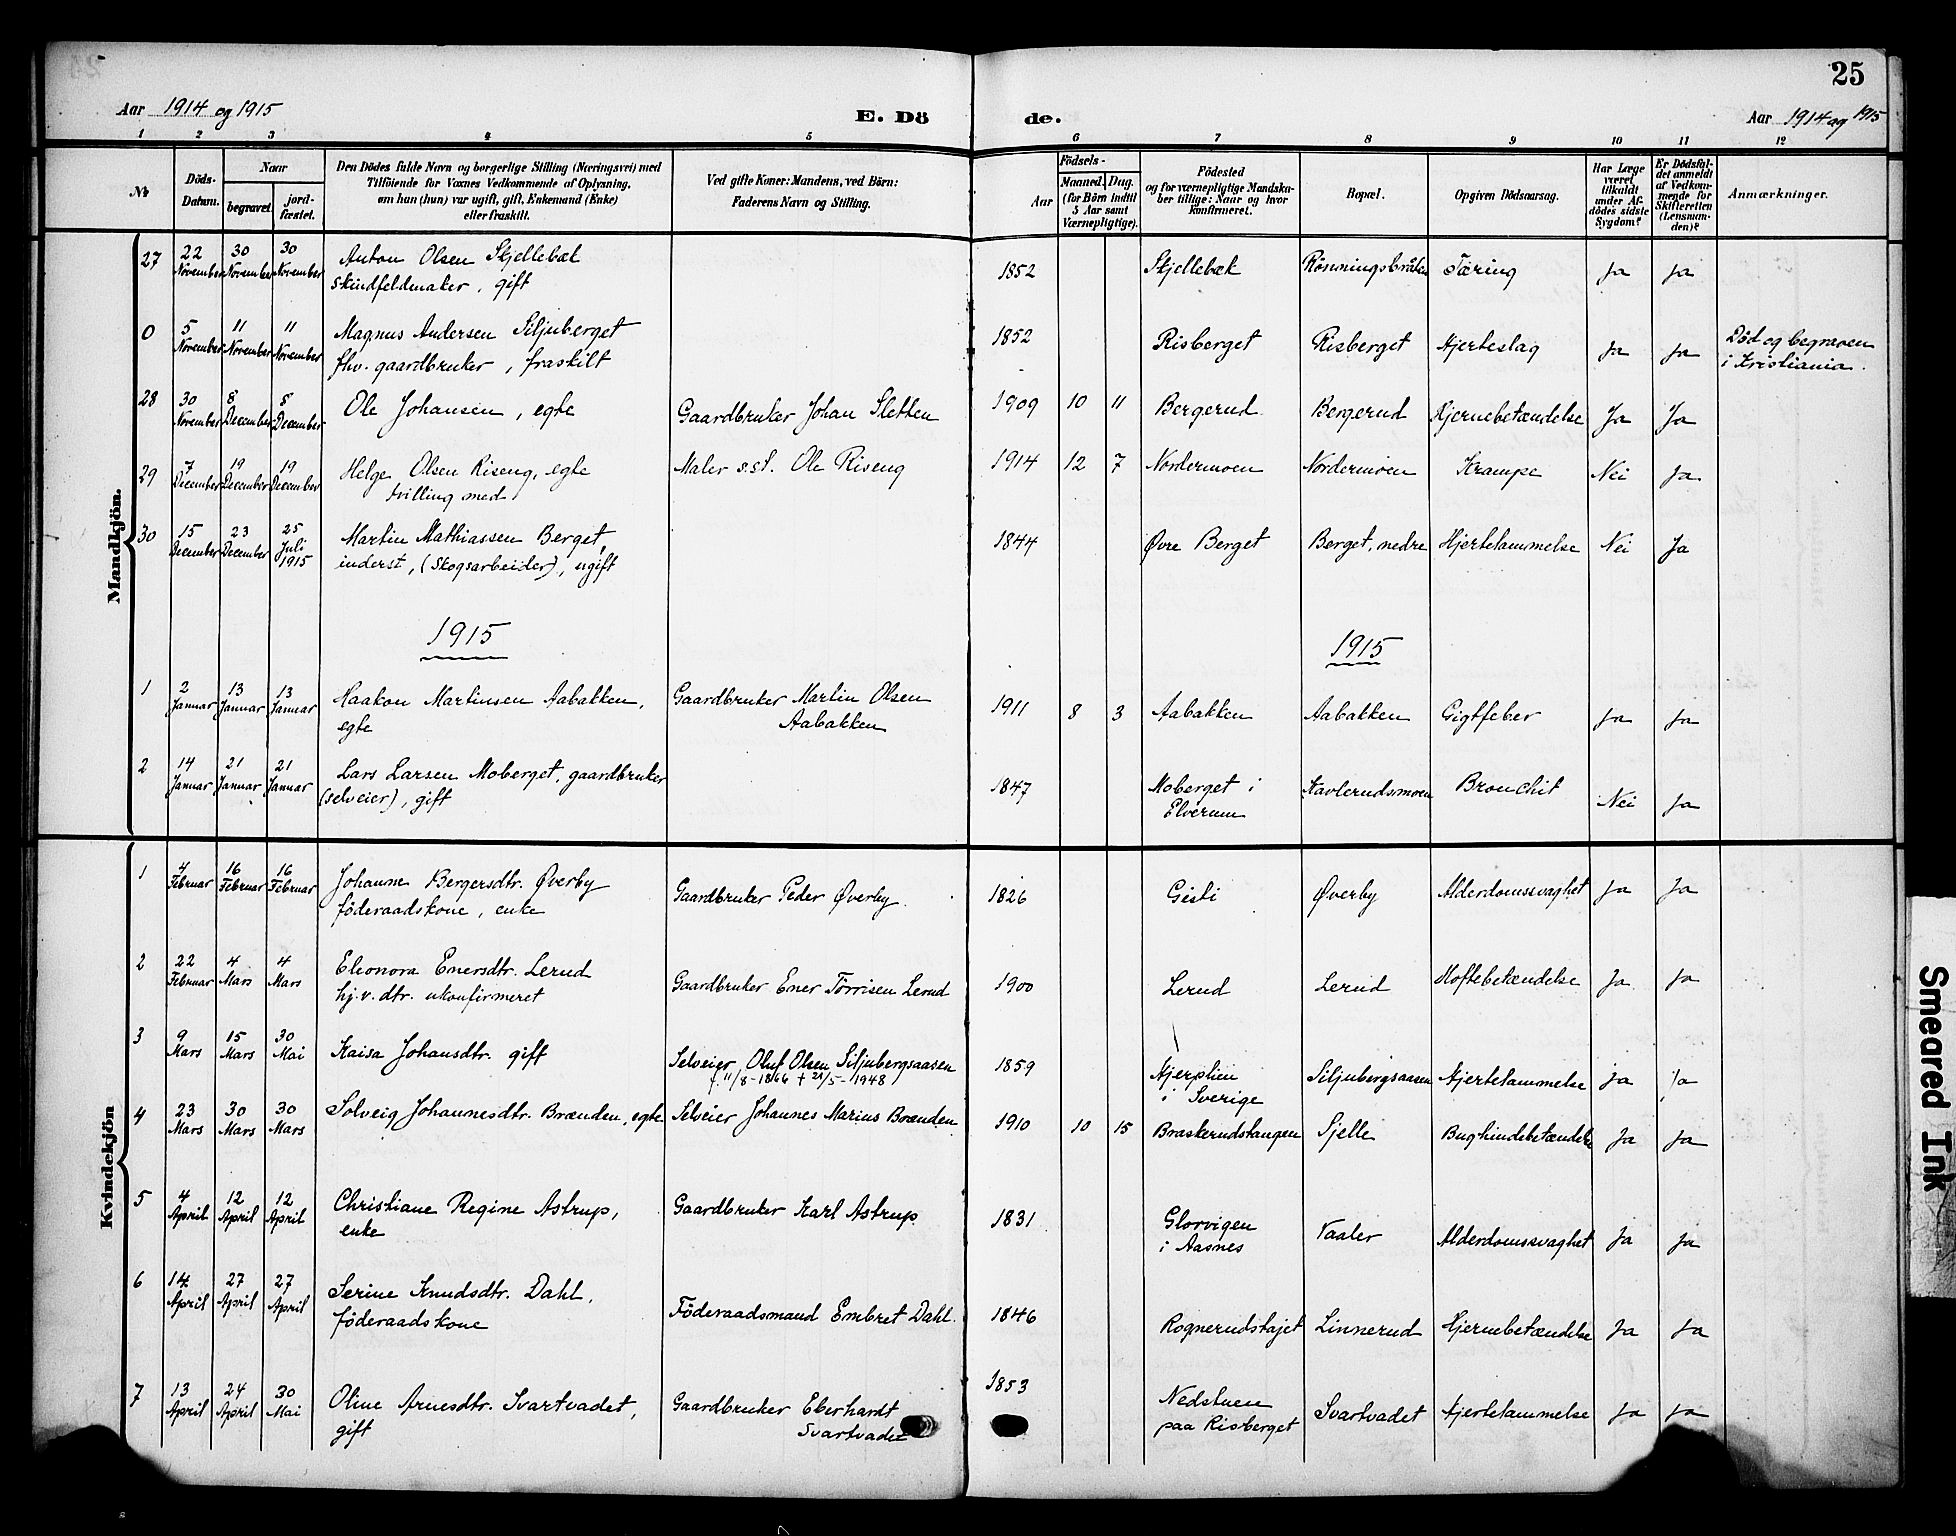 25
Aar 1914 og 1915
E. Dö
de.
Aar 1914 og 1915
1 2 3 4 5 6 7 8 9 10 11 12
No
Döds-Datum.
Naar
begravet.
jord-fæstet.
Den Dödes fulde Navn og borgerlige Stilling (Næringsvei) med
Tilföiende for Voxnes Vedkommende af Oplysning,
om han (hun) var ugift, gift, Enkemand (Enke)
eller fraskilt.
Ved gifte Koner: Mandens, ved Börn:
Faderens Navn og Stilling.
Födsels-
Aar
Maaned. Dag.
(for Börn indtil
5 Aar samt
Værnepligtige).
Födested
og for værnepligtige Mandska-
ber tillige: Naar og hvor
konfirmeret.
Bopæl.
Opgiven Dödsaarsag.
Har Læge
været
tilkaldt
under Af-
dödes sidste
Sygdom?
Er Dödsfal-
det anmeldt
af Vedkom-
mende for
Skifteretten
(Lensman-
den)?
Anmærkninger.
Mandkjön.
27 22 November 30 November 30 November Anton Olsen Skjellebæk 1852 Skjellebæk Rönningsbråten Tæring Ja Ja
skindfeldmaker, gift
0 5 November 11 November 11 November Magnus Andersen Siljuberget 1852 Risberget Risberget Hjerteslag Ja Ja Död og begraven
fhv. gaardbruker, fraskilt i Kristiania.
28 30 November 8 December 8 December Ole Johansen, egte Gaardbruker Johan Sletten 1909 10 11 Bergerud Bergerud Hjernebetændelse Ja Ja
29 7 December 19 December 19 December Helge Olsen Riseng, egte Maler s.st. Ole Riseng 1914 12 7 Nordermoen Nordermoen Krampe Nei Ja
tvilling med
30 15 December 23 December 25 Juli 1915 Martin Mathiassen Berget, 1844 Øvre Berget Berget, nedre Hjertelammelse Nei Ja
inderst, (skogsarbeider), ugift
1915 1915
1 2 Januar 13 Januar 13 Januar Haakon Martinsen Aabakken, Gaardbruker Martin Olsen 1911 8 3 Aabakken Aabakken Gigtfeber Ja Ja
egte Aabakken
2 14 Januar 21 Januar 21 Januar Lars Larsen Moberget, gaardbruker 1847 Moberget i Kavlerudsmoen Bronchit Nei Ja
(selveier), gift Elverum
Kvindekjön
1 4 Februar 16 Februar 16 Februar Johanne Bergersdtr. Øverby Gaardbruker Peder Øverby. 1826 Gisti Øverby Alderdomssvaghet Ja Ja
föderaadskone, enke
2 22 Februar 4 Mars 4 Mars Eleonora Enersdtr. Lerud Gaardbruker Ener Törrisen Lerud 1900 Lerud Lerud Hoftebetændelse Ja Ja
hj.v. dtr. ukonfirmeret
3 9 Mars 15 Mars 30 Mai Kaisa Johansdtr. gift Selveier Oluf Olsen Siljubergsaasen 1859 Hjerplien Siljubergsaasen Hjertelammelse Ja Ja
f. 11/8-1866 + 21/5-1948 i Sverige
4 23 Mars 30 Mars 30 Mars Solveig Johannesdtr. Brænden, egte Selveier Johannes Marius Brænden 1910 10 15 Braskerudstangen Sjelle Bughindebetændelse Ja Ja
5 4 April 12 April 12 April Christiane Regine Astrup, Gaardbruker Karl Astrup 1831 Glorvigen Vaaler Alderdomssvaghet Ja Ja
enke i Aasnes
6 14 April 27 April 27 April Serine Knudsdtr. Dahl, Föderaadsmand Embret Dahl. 1846 Rognerudstajet Linnerud Hjernebetændelse Ja Ja
föderaadskone
7 13 April 24 April 30 Mai Oline Arnesdtr. Svartvadet, Gaardbruker Eberhardt 1853 Nedstuen Svartvadet Hjertelammelse Ja Ja
gift Svartvadet paa Risberget
Smeared Ink